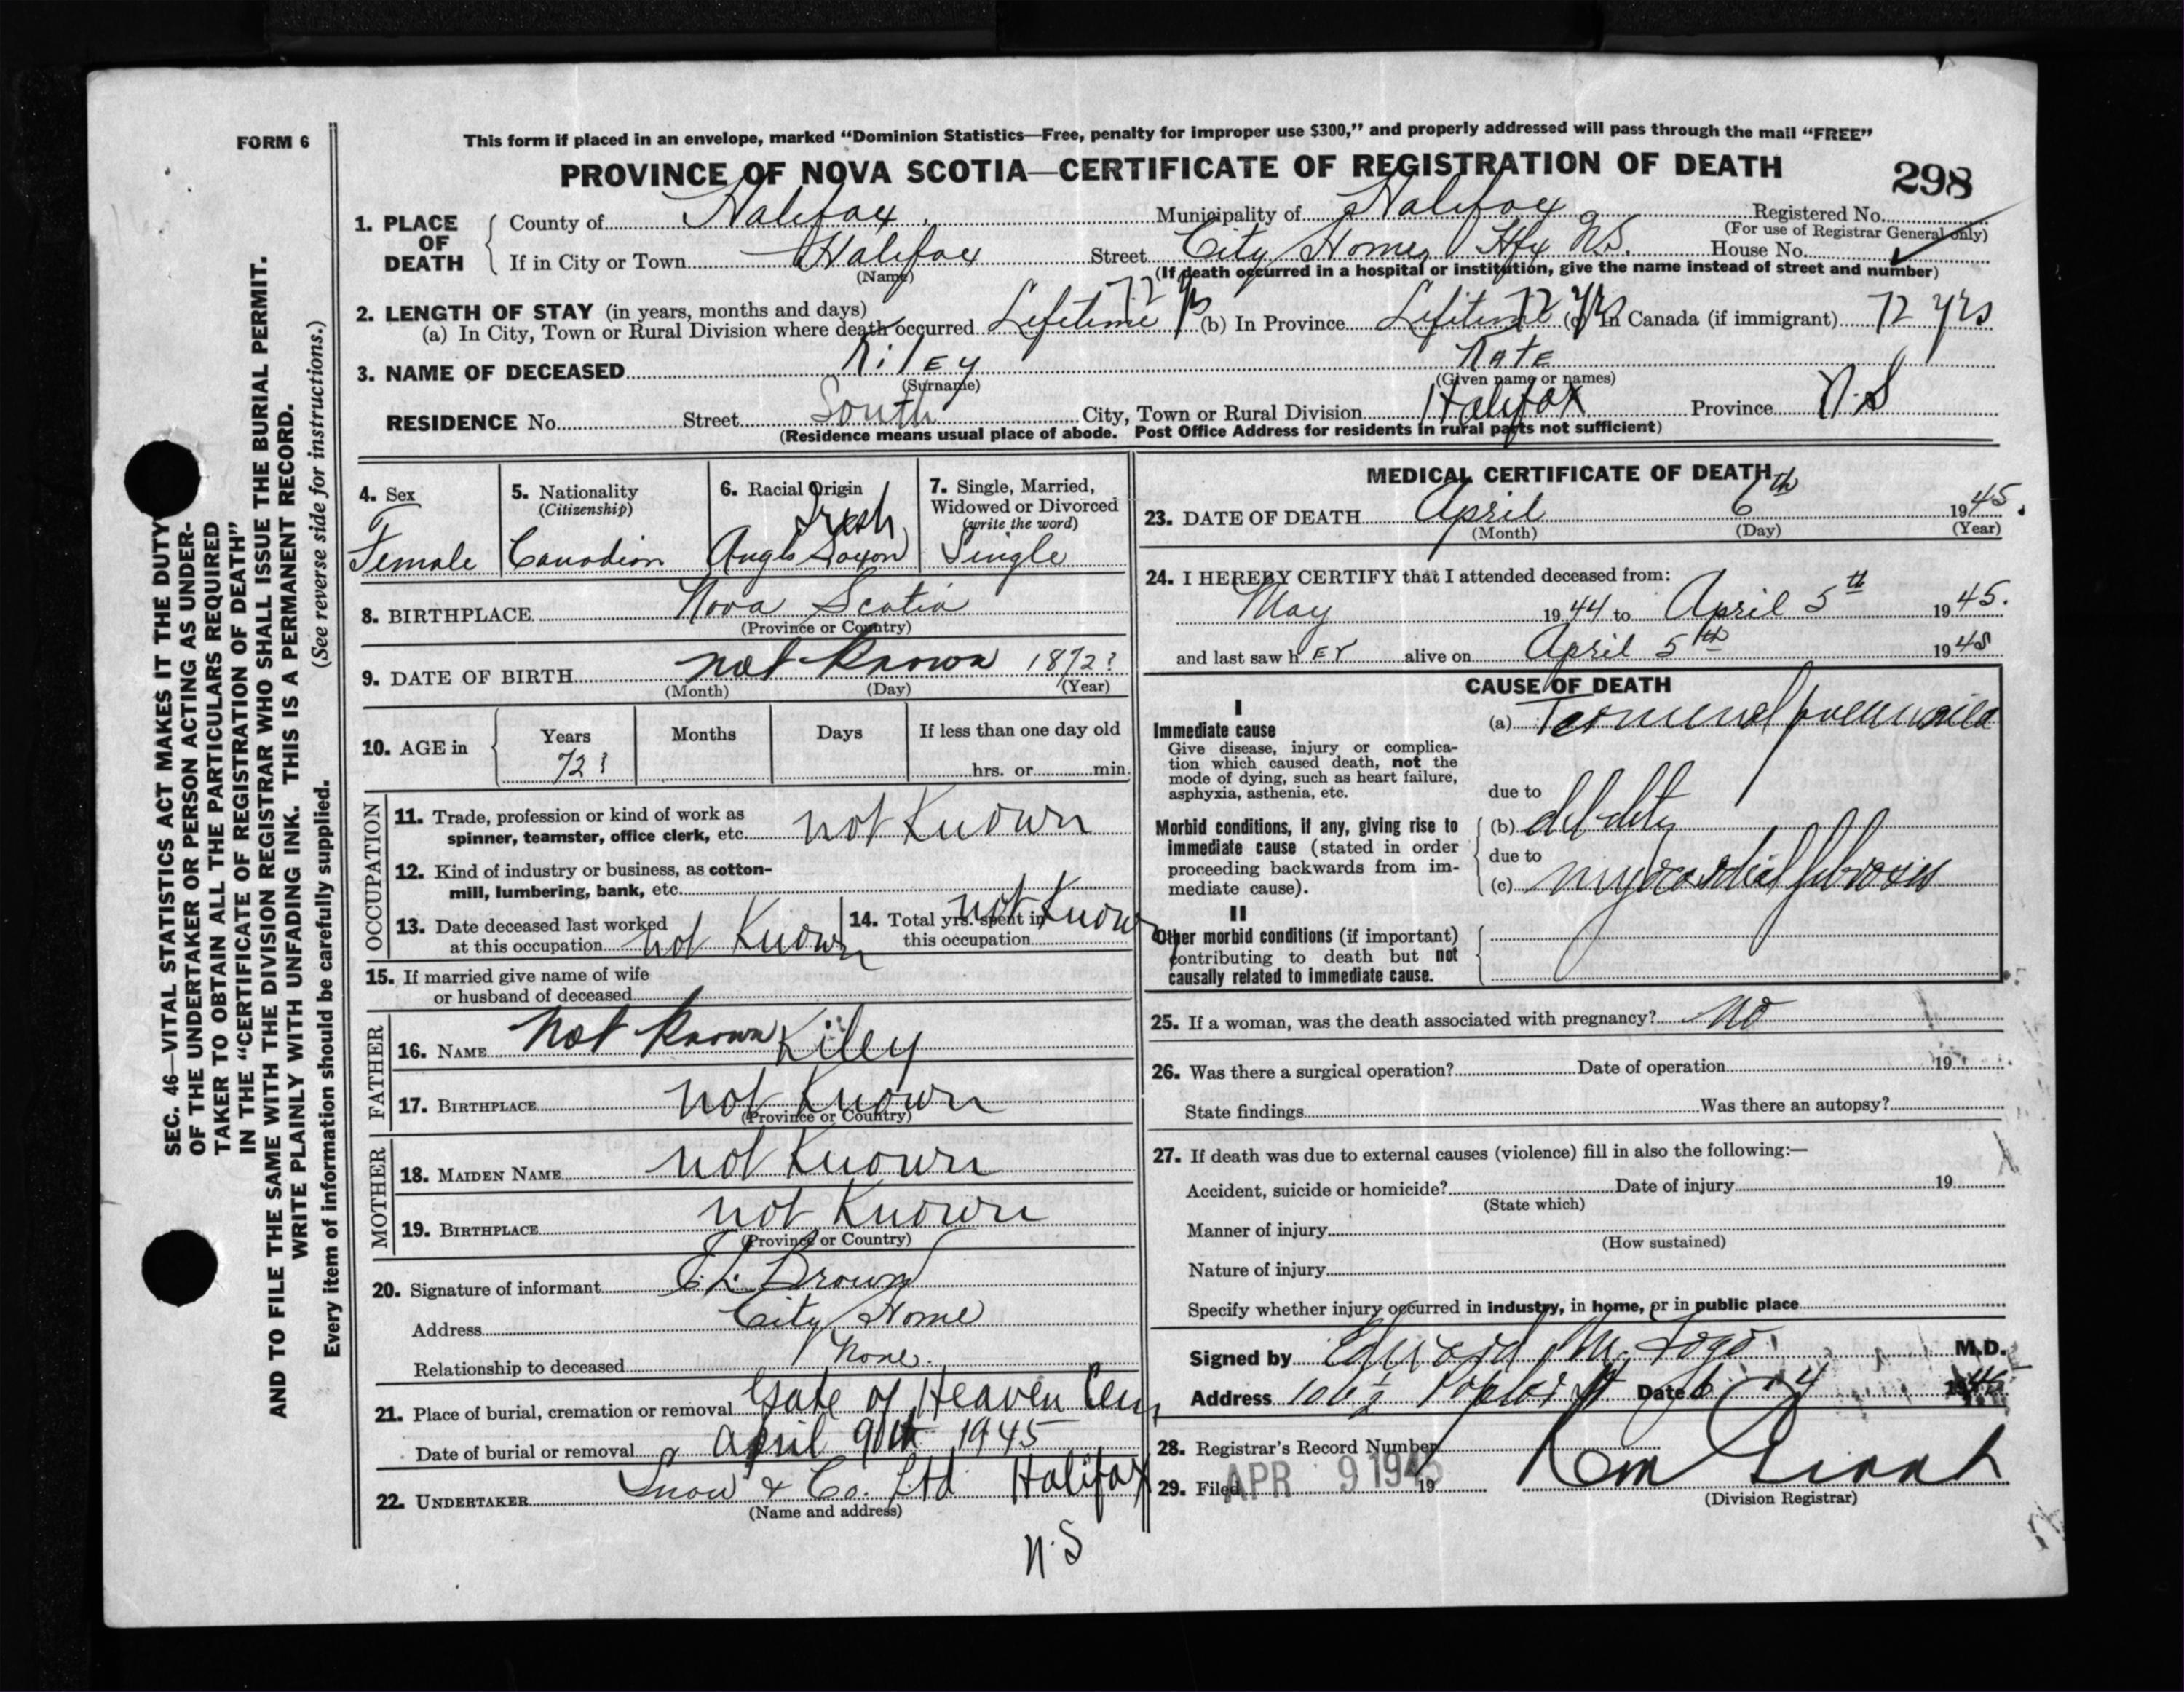 FORM 6
This form if placed in an envelope, marked “Dominion Statistics—Free, penalty for improper use $300,” and properly addressed will pass through the mail “FREE”
PROVINCE OF NOVA SCOTIA—CERTIFICATE OF REGISTRATION OF DEATH
298
1. PLACE OF DEATH
County of Halifax. Municipality of Halifax Registered No.
(For use of Registrar General only)
If in City or Town Halifax Street City Home, Hfx N.S. House No.
(Name) (If death occurred in a hospital or institution, give the name instead of street and number)
2. LENGTH OF STAY (in years, months and days)
(a) In City, Town or Rural Division where death occurred Lifetime 72 yrs (b) In Province Lifetime 72 yrs (c) In Canada (if immigrant) 72 yrs
3. NAME OF DECEASED Riley Kate
(Surname) (Given name or names)
RESIDENCE No. Street South City, Town or Rural Division Halifax Province N.S
(Residence means usual place of abode. Post Office Address for residents in rural parts not sufficient)
4. Sex
Female
5. Nationality
(Citizenship)
Canadian
6. Racial Origin
Irish
Anglo Saxon
7. Single, Married,
Widowed or Divorced
(write the word)
Single
8. BIRTHPLACE Nova Scotia
(Province or Country)
9. DATE OF BIRTH not known 1872?
(Month) (Day) (Year)
10. AGE in Years Months Days If less than one day old
72? hrs. or min.
OCCUPATION
11. Trade, profession or kind of work as
spinner, teamster, office clerk, etc. not Known
12. Kind of industry or business, as cotton-
mill, lumbering, bank, etc. not Known
13. Date deceased last worked
at this occupation not Known
14. Total yrs. spent in
this occupation
15. If married give name of wife
or husband of deceased
FATHER
16. NAME not known Riley
17. BIRTHPLACE not Known
(Province or Country)
MOTHER
18. MAIDEN NAME not Known
19. BIRTHPLACE not Known
(Province or Country)
20. Signature of informant Brown
Address City Home
Relationship to deceased None.
21. Place of burial, cremation or removal Gate of Heaven Cem
Date of burial or removal April 9th 1945
22. UNDERTAKER Snow & Co. Ltd Halifax
(Name and address)
N.S
MEDICAL CERTIFICATE OF DEATH
23. DATE OF DEATH April 6th 1945.
(Month) (Day) (Year)
24. I HEREBY CERTIFY that I attended deceased from:
May 1944 to April 5th 1945.
and last saw her alive on April 5th 1945
CAUSE OF DEATH
I
Immediate cause
Give disease, injury or complica-
tion which caused death, not the
mode of dying, such as heart failure,
asphyxia, asthenia, etc.
(a) Terminal pneumonia
due to
Morbid conditions, if any, giving rise to
immediate cause (stated in order
proceeding backwards from im-
mediate cause).
(b) debility
due to
(c) myocardial fibrosis
II
Other morbid conditions (if important)
contributing to death but not
causally related to immediate cause.
25. If a woman, was the death associated with pregnancy? no
26. Was there a surgical operation? Date of operation 19
State findings Was there an autopsy?
27. If death was due to external causes (violence) fill in also the following:—
Accident, suicide or homicide? Date of injury 19
(State which)
Manner of injury
(How sustained)
Nature of injury
Specify whether injury occurred in industry, in home, or in public place
Signed by Edward M. M.D.
Address 106½ St Date 6 4 1945
28. Registrar's Record Number
29. Filed APR 9 1945 19
(Division Registrar)
SEC. 46—VITAL STATISTICS ACT MAKES IT THE DUTY
OF THE UNDERTAKER OR PERSON ACTING AS UNDER-
TAKER TO OBTAIN ALL THE PARTICULARS REQUIRED
IN THE “CERTIFICATE OF REGISTRATION OF DEATH”
AND TO FILE THE SAME WITH THE DIVISION REGISTRAR WHO SHALL ISSUE THE BURIAL PERMIT.
WRITE PLAINLY WITH UNFADING INK. THIS IS A PERMANENT RECORD.
Every item of information should be carefully supplied. (See reverse side for instructions.)